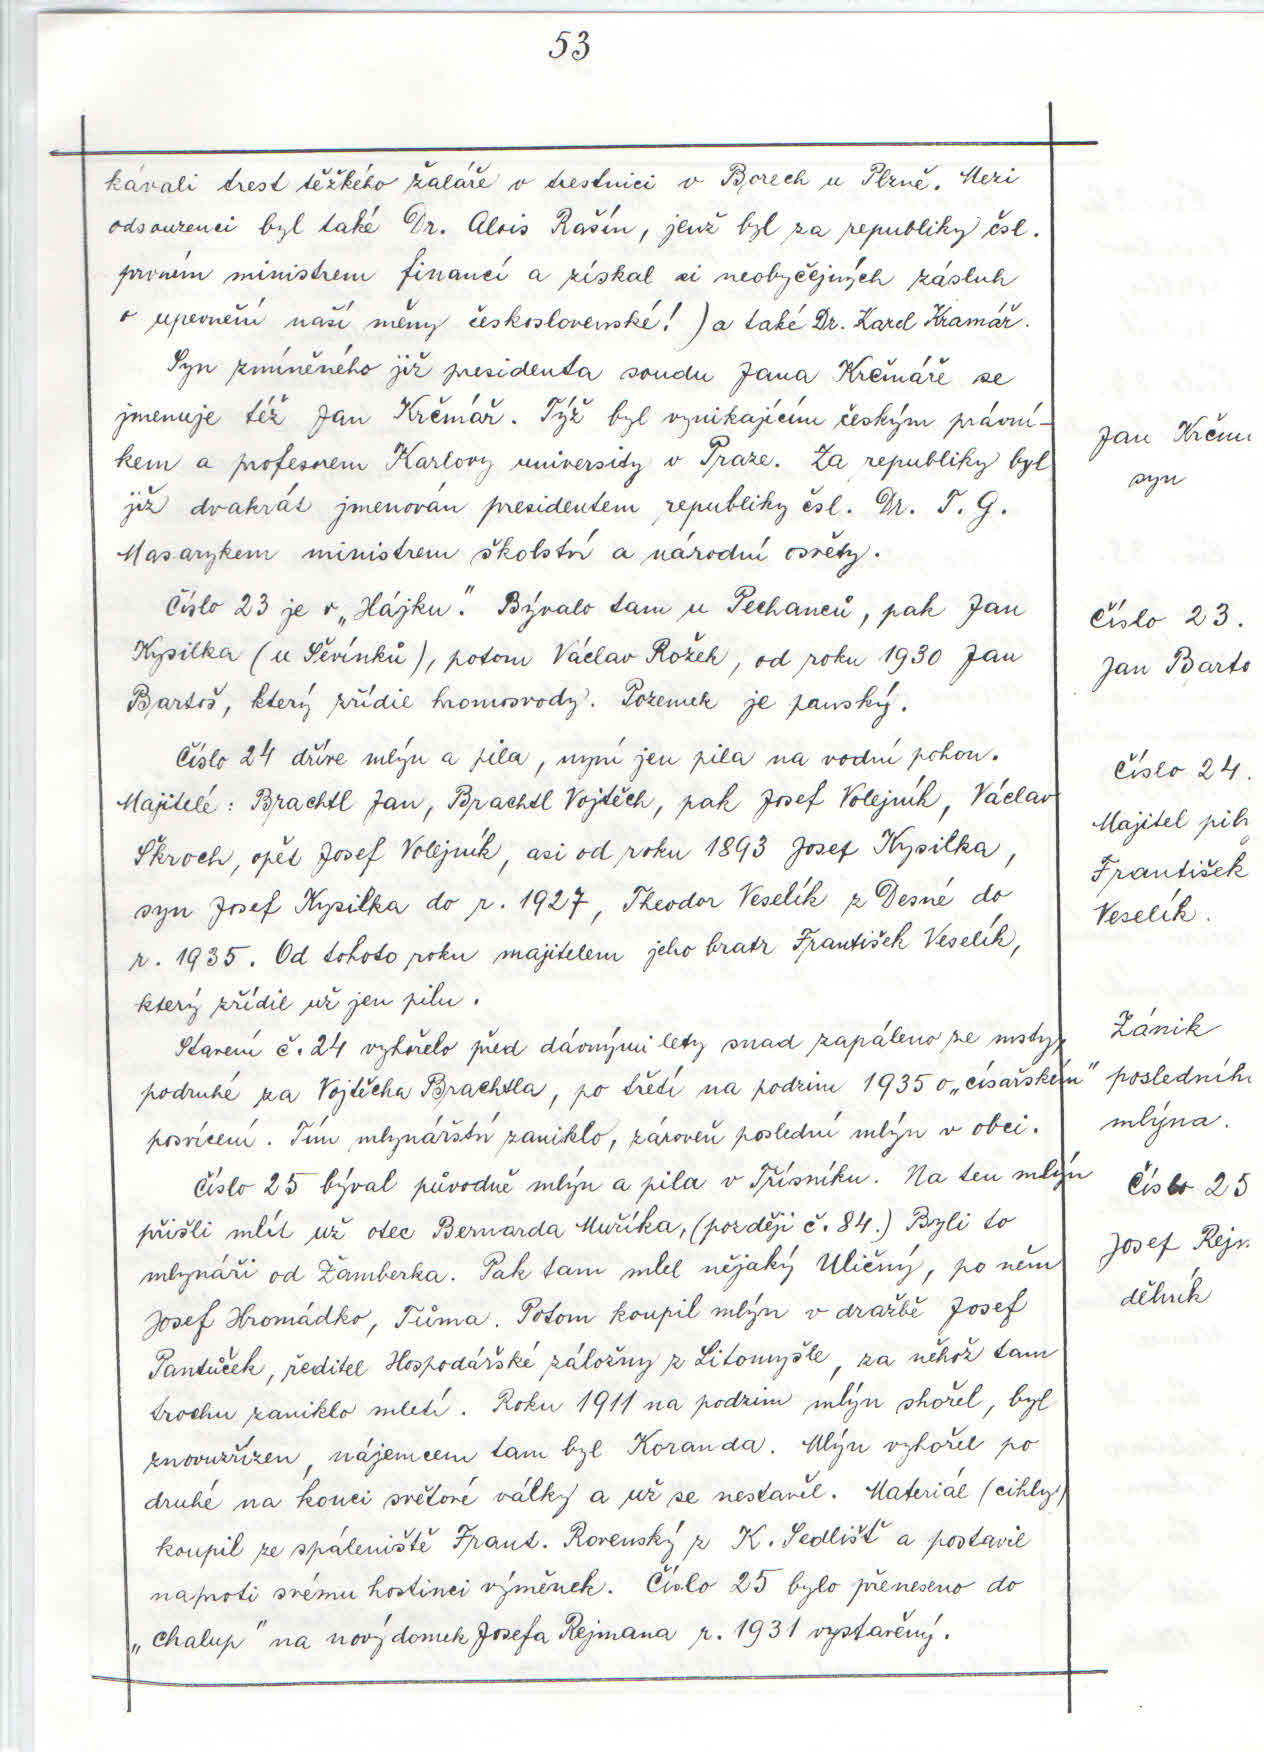 53
kávali trest těžkého žaláře v trestnici v Borech u Plzně. Mezi
odsouzenci byl také Dr. Alois Rašín, jenž byl za republiky čsl.
prvním ministrem financí a získal si neobyčejných zásluh
o upevnění naší měny československé! ) a také Dr. Karel Kramář.
Syn zmíněného již presidenta soudu Jana Krčmáře se
jmenuje též Jan Krčmář. Týž byl vynikajícím českým právní-
kem a profesorem Karlovy university v Praze. Za republiky byl
již dvakrát jmenován presidentem republiky čsl. Dr. T. G.
Masarykem ministrem školství a národní osvěty.
Jan Krčm
syn
Číslo 23 je v „Hájku". Bývalo tam u Pechanců, pak Jan
Kysilka (u Sěvínků), potom Václav Rožek, od roku 1930 Jan
Bartoš, který zřídil hromosvody. Pozemek je panský.
Číslo 23.
Jan Barto
Číslo 24 dříve mlýn a pila, nyní jen pila na vodní pohon.
Majitelé: Brachtl Jan, Brachtl Vojtěch, pak Josef Volejník, Václav
Škroch, opět Josef Volejník, asi od roku 1893 Josef Kysilka,
syn Josef Kysilka do r. 1927, Theodor Veselík z Desné do
r. 1935. Od tohoto roku majitelem jeho bratr František Veselík,
který zřídil už jen pilu.
Číslo 24.
Majitel pily
František
Veselík.
Stavení č. 24 vyhořelo před dávnými lety snad zapáleno ze msty,
podruhé za Vojtěcha Brachtla, po třetí na podzim 1935 o „císařském"
posvícení. Tím mlynářství zaniklo, zároveň poslední mlýn v obci.
Zánik
posledníh
mlýna.
Číslo 25 býval původně mlýn a pila v Třísníku. Na ten mlýn
přišli mlít už otec Bernarda Muříka, (později č. 84.) Byli to
mlynáři od Žamberka. Pak tam mlel nějaký Uličný, po něm
Josef Hromádko, Tůma. Potom koupil mlýn v dražbě Josef
Pantůček, ředitel Hospodářské záložny z Litomyšle, za něhož tam
trochu zaniklo mletí. Roku 1911 na podzim mlýn shořel, byl
znovuzřízen, nájemcem tam byl Koranda. Mlýn vyhořel po
druhé na konci světové války a už se nestavěl. Materiál (cihly)
koupil ze spáleniště Frant. Rovenský z K. Sedlišť a postavil
naproti svému hostinci výměnek. Číslo 25 bylo přeneseno do
„Chalup" na nový domek Josefa Rejmana r. 1931 vystavěný.
Číslo 25
Josef Rejm
dělník